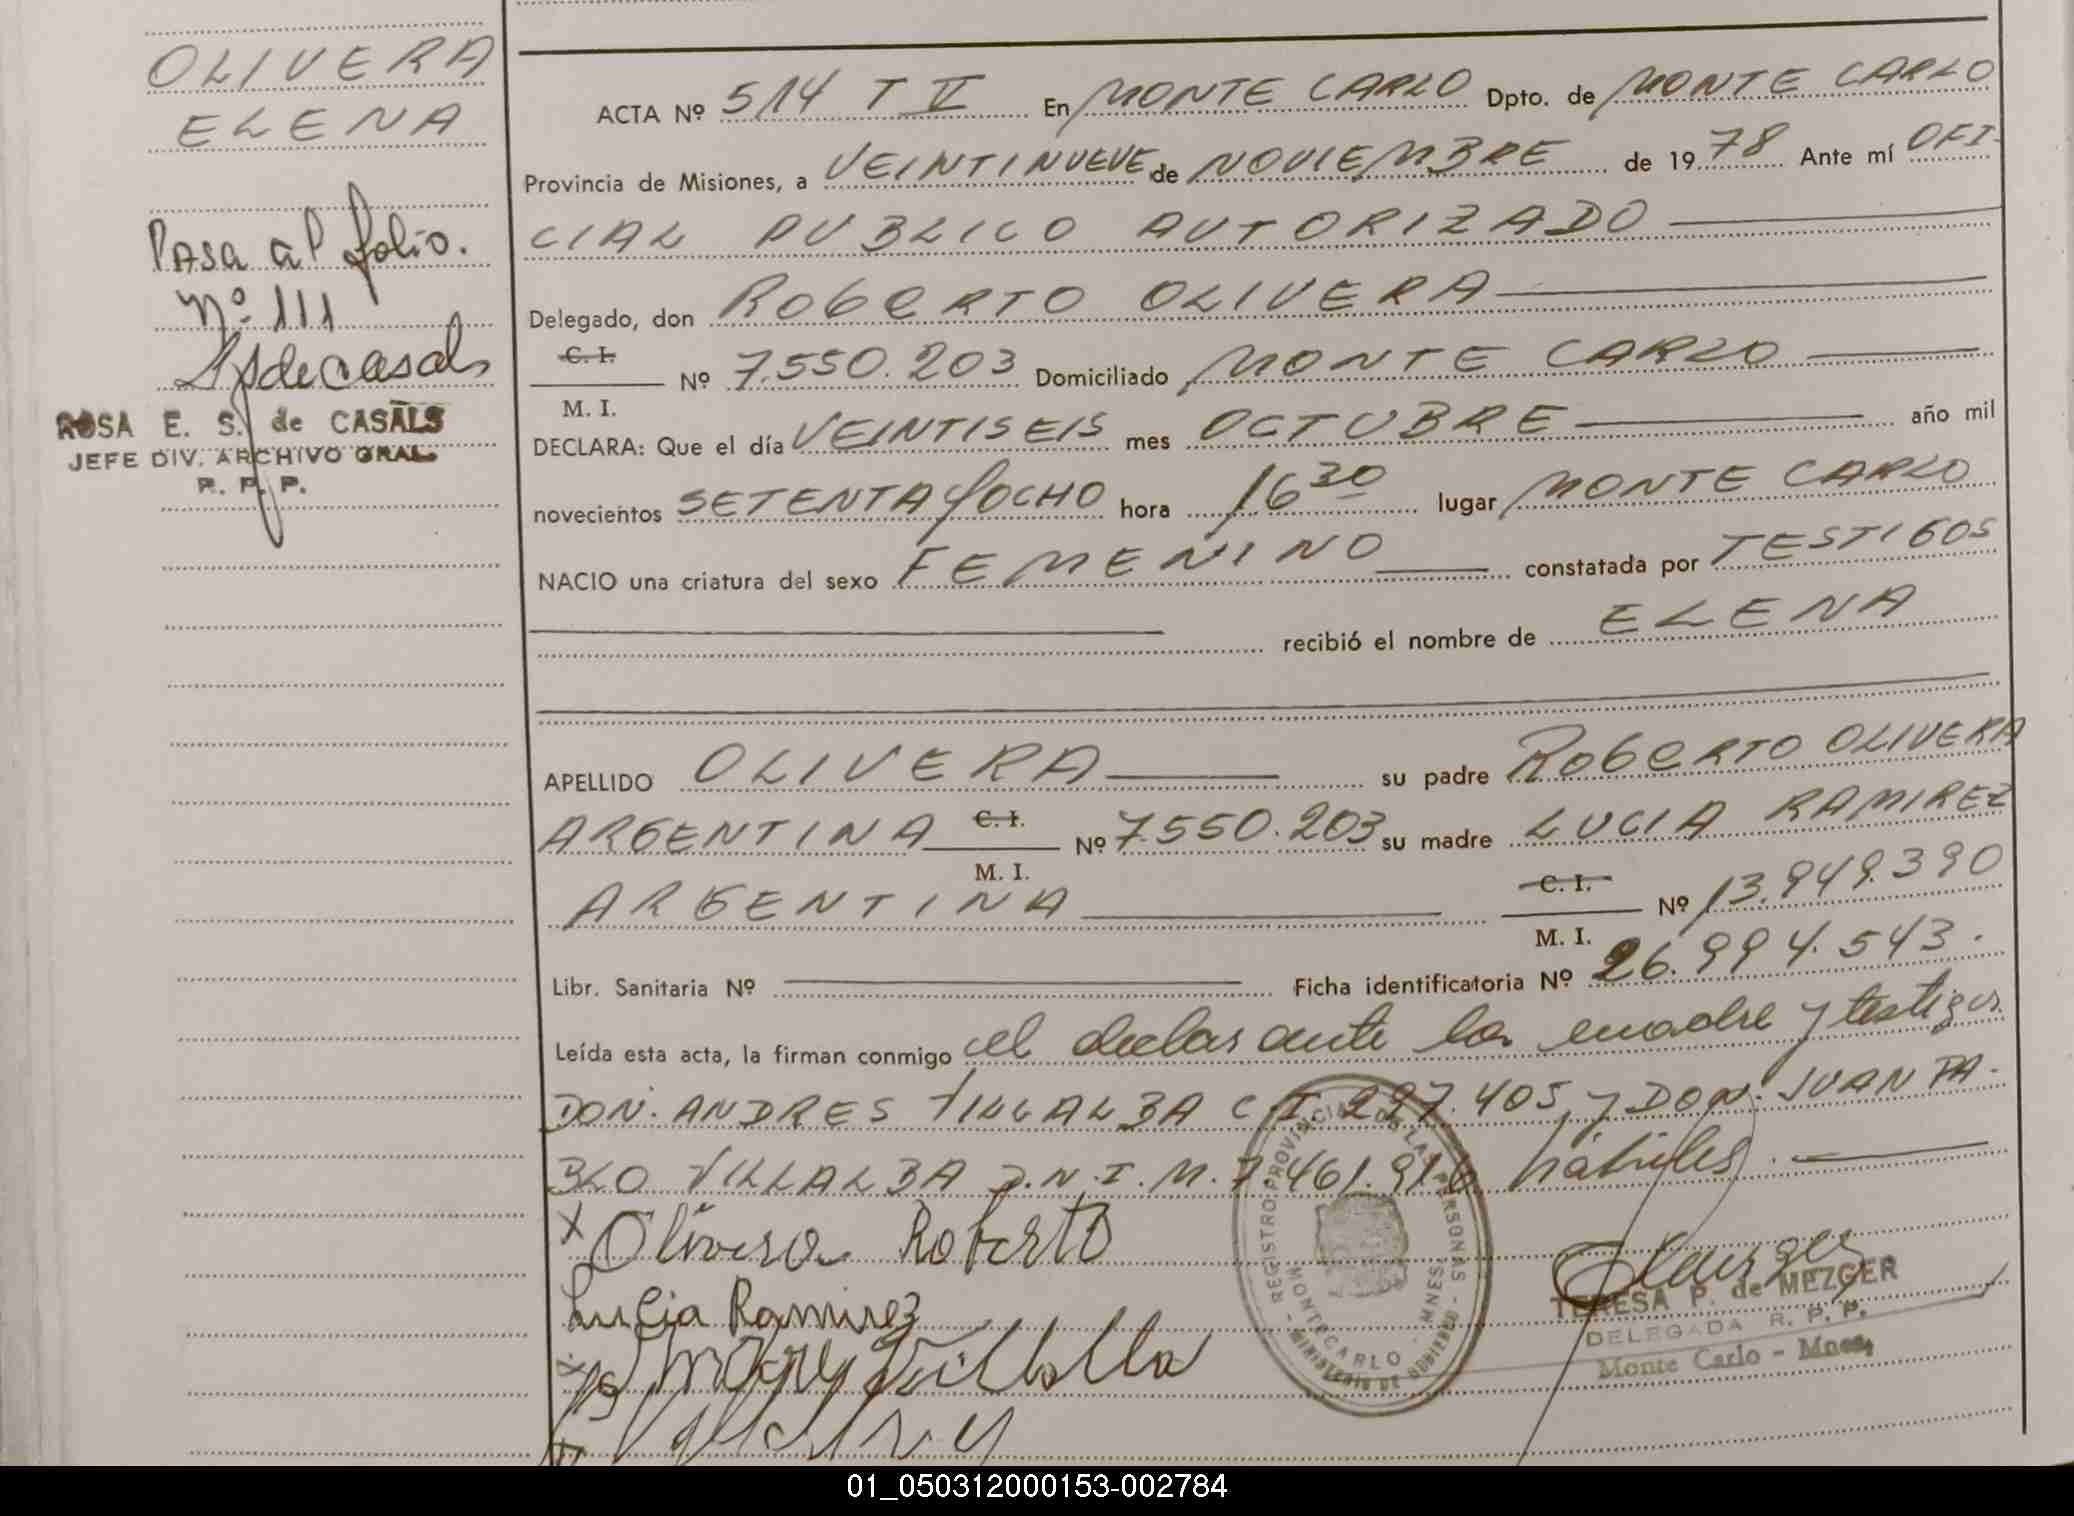 OLIVERA
ELENA
Pasa al folio.
Nº 111
ROSA E. S. de CASALS
JEFE DIV. ARCHIVO GRAL.
R. P. P.
ACTA Nº 514 T II En MONTE CARLO Dpto. de MONTE CARLO
Provincia de Misiones, a VEINTINUEVE de NOVIEMBRE de 1978 Ante mí OFI-
CIAL PUBLICO AUTORIZADO
Delegado, don ROBERTO OLIVERA
C. I.
Nº 7.550.203 Domiciliado MONTE CARLO
M. I.
DECLARA: Que el día VEINTISEIS mes OCTUBRE año mil
novecientos SETENTA Y OCHO hora 16 30 lugar MONTE CARLO
NACIO una criatura del sexo FEMENINO constatada por TESTIGOS
recibió el nombre de ELENA
APELLIDO OLIVERA su padre ROBERTO OLIVERA
ARGENTINA C. I. Nº 7.550.203 su madre LUCIA RAMIREZ
M. I.
ARGENTINA C. I. Nº 13.949.390
M. I.
Libr. Sanitaria Nº Ficha identificatoria Nº 26.994.543.
Leída esta acta, la firman conmigo el declarante la madre y testigos
DON. ANDRES VILLALBA C.I. 227.405, y DON. JUAN PA-
BLO VILLALBA D.N.I.M. 7.461.916 hábiles.
x Olivera Roberto
Lucia Ramirez
Villalba
REGISTRO PROVINCIAL DE LAS PERSONAS
MONTECARLO - MNES.
MINISTERIO DE GOBIERNO
TERESA P. de MEZGER
DELEGADA R. P. P.
Monte Carlo - Mnes.
01_050312000153-002784